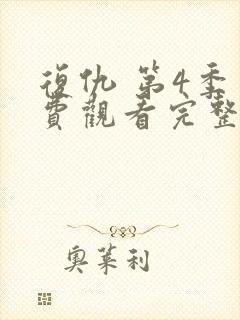 復仇 第4季
費觀看完整
奧萊利